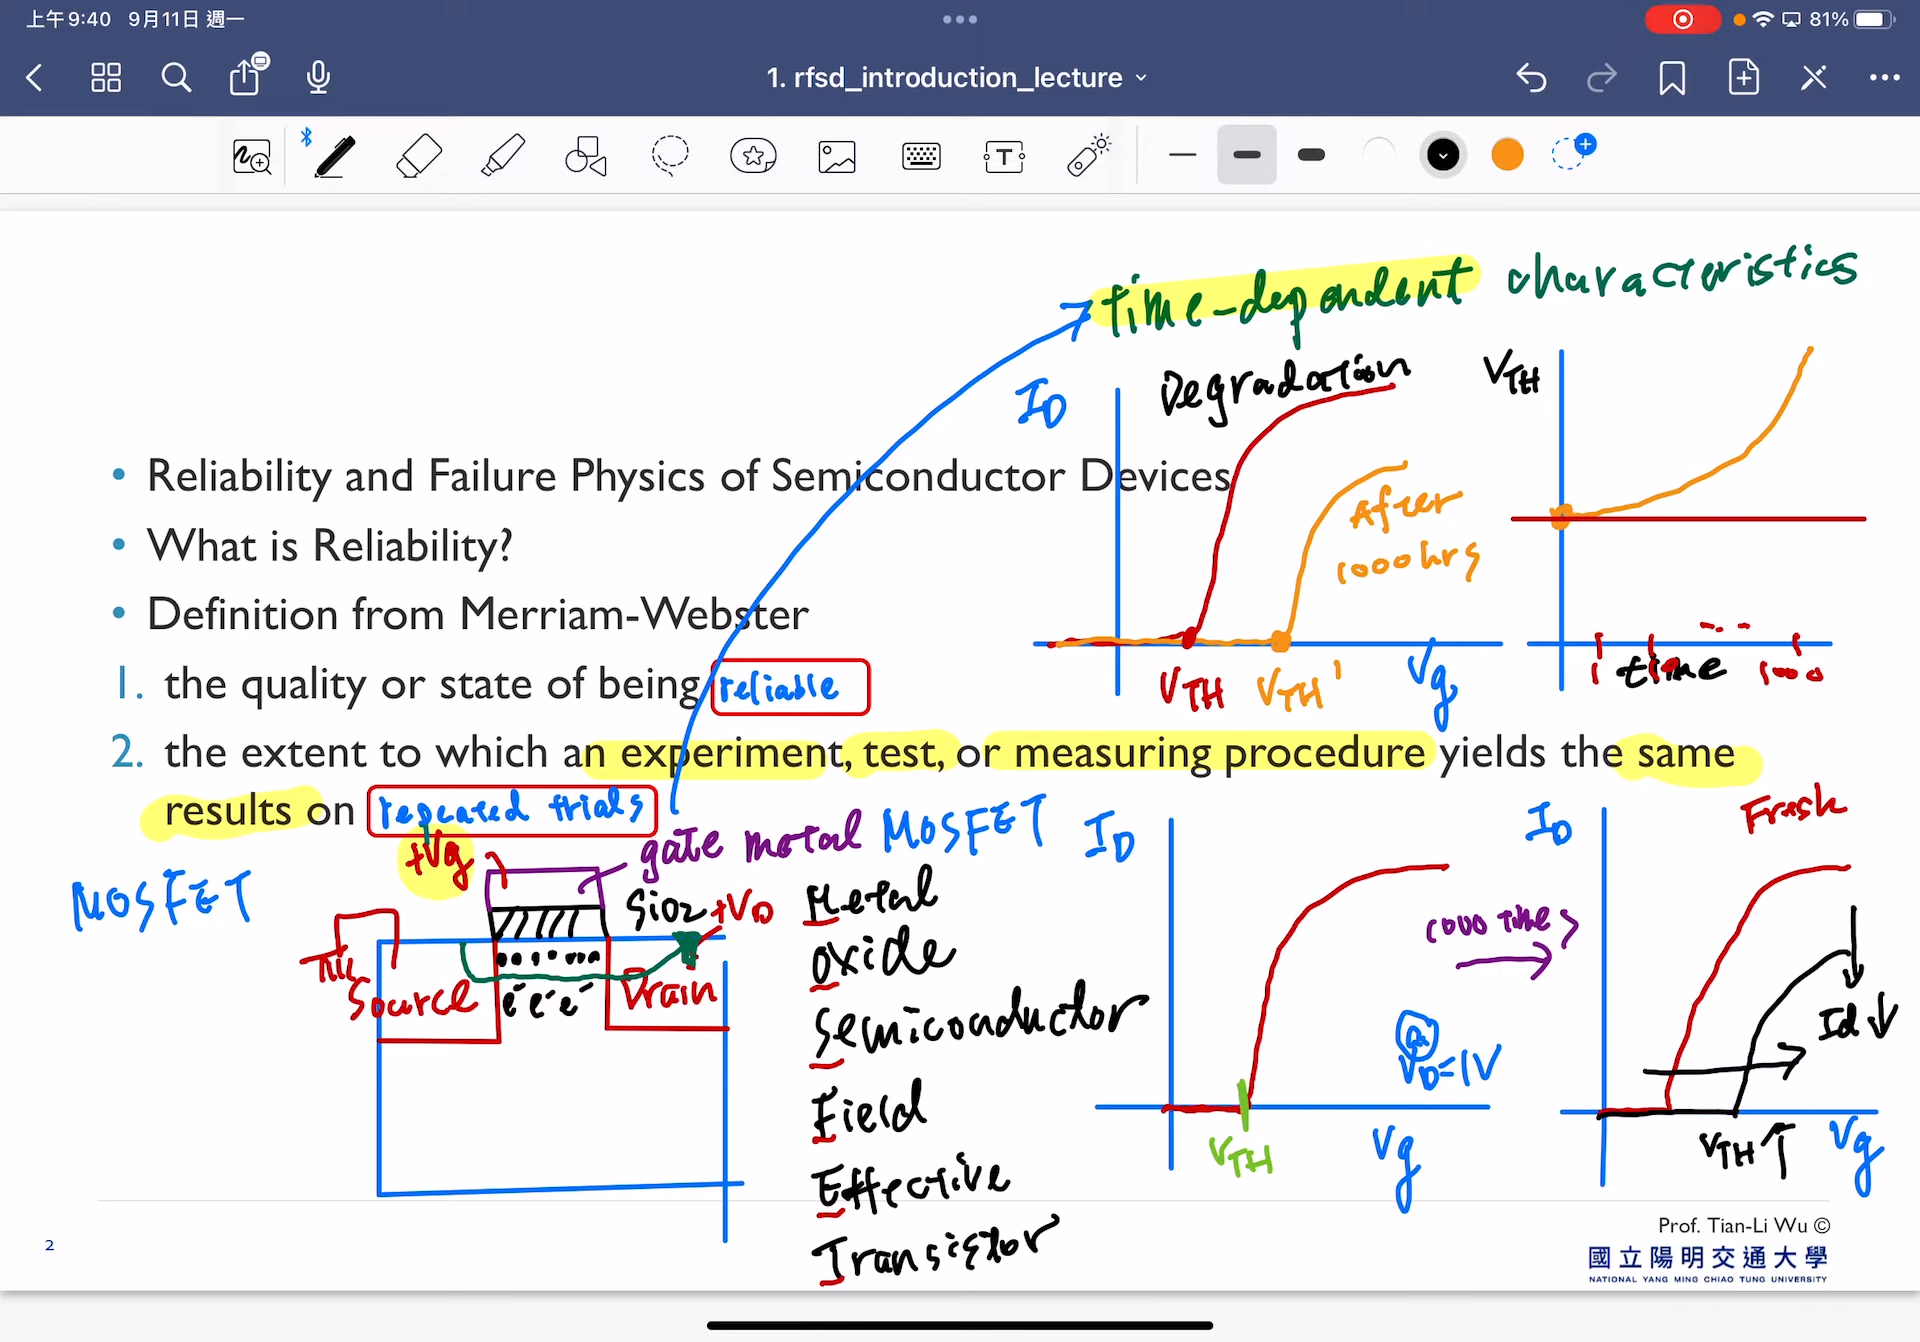 上午9:40 9月11日 週一
81%
1. rfsd_introduction_lecture
T
time-dependent characteristics
ID
Degradation
VTH
After
1000hrs
VTH VTH' Vg
1 time 1000
• Reliability and Failure Physics of Semiconductor Devices
• What is Reliability?
• Definition from Merriam-Webster
1. the quality or state of being reliable
2. the extent to which an experiment, test, or measuring procedure yields the same
results on repeated trials
+Vg
gate metal
MOSFET
MOSFET
SiO2
+VD
Source
e- e- e-
Drain
Metal
Oxide
Semiconductor
Field
Effective
Transistor
ID
VTH
Vg
@
VD=1V
1000 times
ID
Fresh
Id↓
VTH↑
Vg
Prof. Tian-Li Wu ©
國立陽明交通大學
NATIONAL YANG MING CHIAO TUNG UNIVERSITY
2